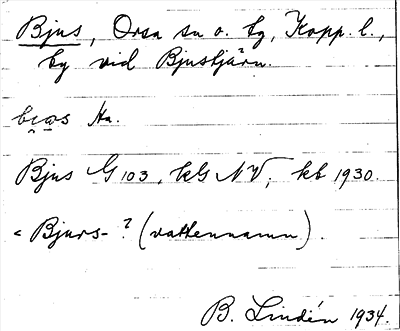 Bjus, Orsa sn o. by, Kopp. l.,
by vid Bjustjärn.
Ha.
Bjus G 103, kG NV, kb 1930.
< Bjurs-? (vattennamn).
B. Lindén 1934.